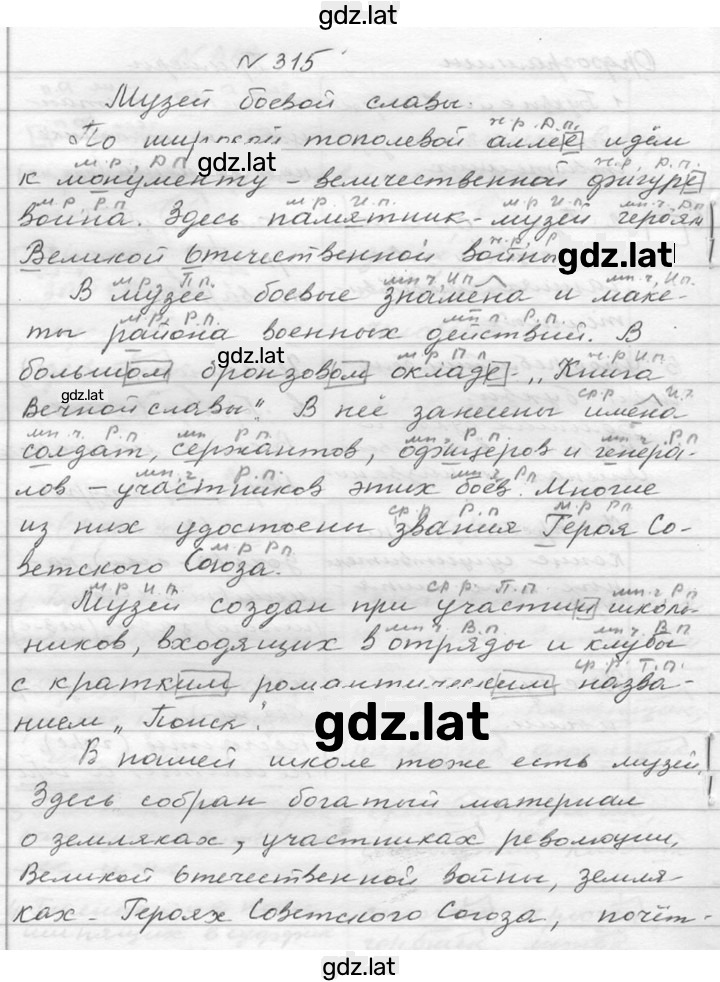 gdz.lat
N 315
Музей боевой славы.
ж.р. Д.п.
По широкой тополевой аллее идём
gdz.lat
м.р. Д.п. ж.р. Д.п.
к монументу – величественной фигуре
м.р. Р.п. м.р. И.п. м.р. И.п. мн.ч. Д.п.
воина. Здесь памятник-музей героям
ж.р. Р.
Великой Отечественной войны
gdz.lat
м.р. П.п. мн.ч. И.п. мн.ч. И.п.
В музее боевые знамёна и маке-
м.р. Р.п. мн.ч. Р.п.
ты района военных действий. В
gdz.lat
м.р. П.п. ж.р. И.п.
большом бронзовом окладе – „Книга
gdz.lat
ср.р. И.
Вечной славы". В неё занесены имена
мн.ч. Р.п. мн. Р.п. мн. Р.п. мн.ч. Р.п.
солдат, сержантов, офицеров и генера-
мн.ч. Р.п. мн.ч. Р.п.
лов – участников этих боёв. Многие
ср.р. Р.п. м.р. Р.п.
из них удостоены звания Героя Со-
м.р. Р.п.
ветского Союза.
м.р. И.п. ср.р. П.п. мн.ч. Р.п.
Музей создан при участии школь-
мн.ч. В.п. мн.ч. В.п.
ников, входящих в отряды и клубы
ср.р. Т.п.
с кратким романтическим назва-
нием „Поиск".
gdz.lat
В нашей школе тоже есть музей.
Здесь собран богатый материал
о земляках, участниках революции,
Великой Отечественной войны, земля-
ках – Героях Советского Союза, почёт-
gdz.lat